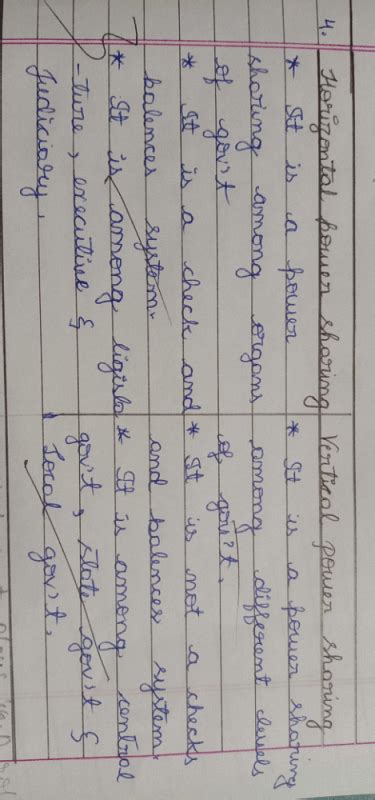 4. Horizontal power sharing | Vertical power sharing
* It is a power | * It is a power sharing
sharing among organs | among different levels
of gov't | of gov't.
* It is a check and | * It is not a checks
balences system. | and balences system.
* It is among ligisla | * It is among central
-ture, executive & | gov't, state gov't &
Judiciary. | Local gov't.